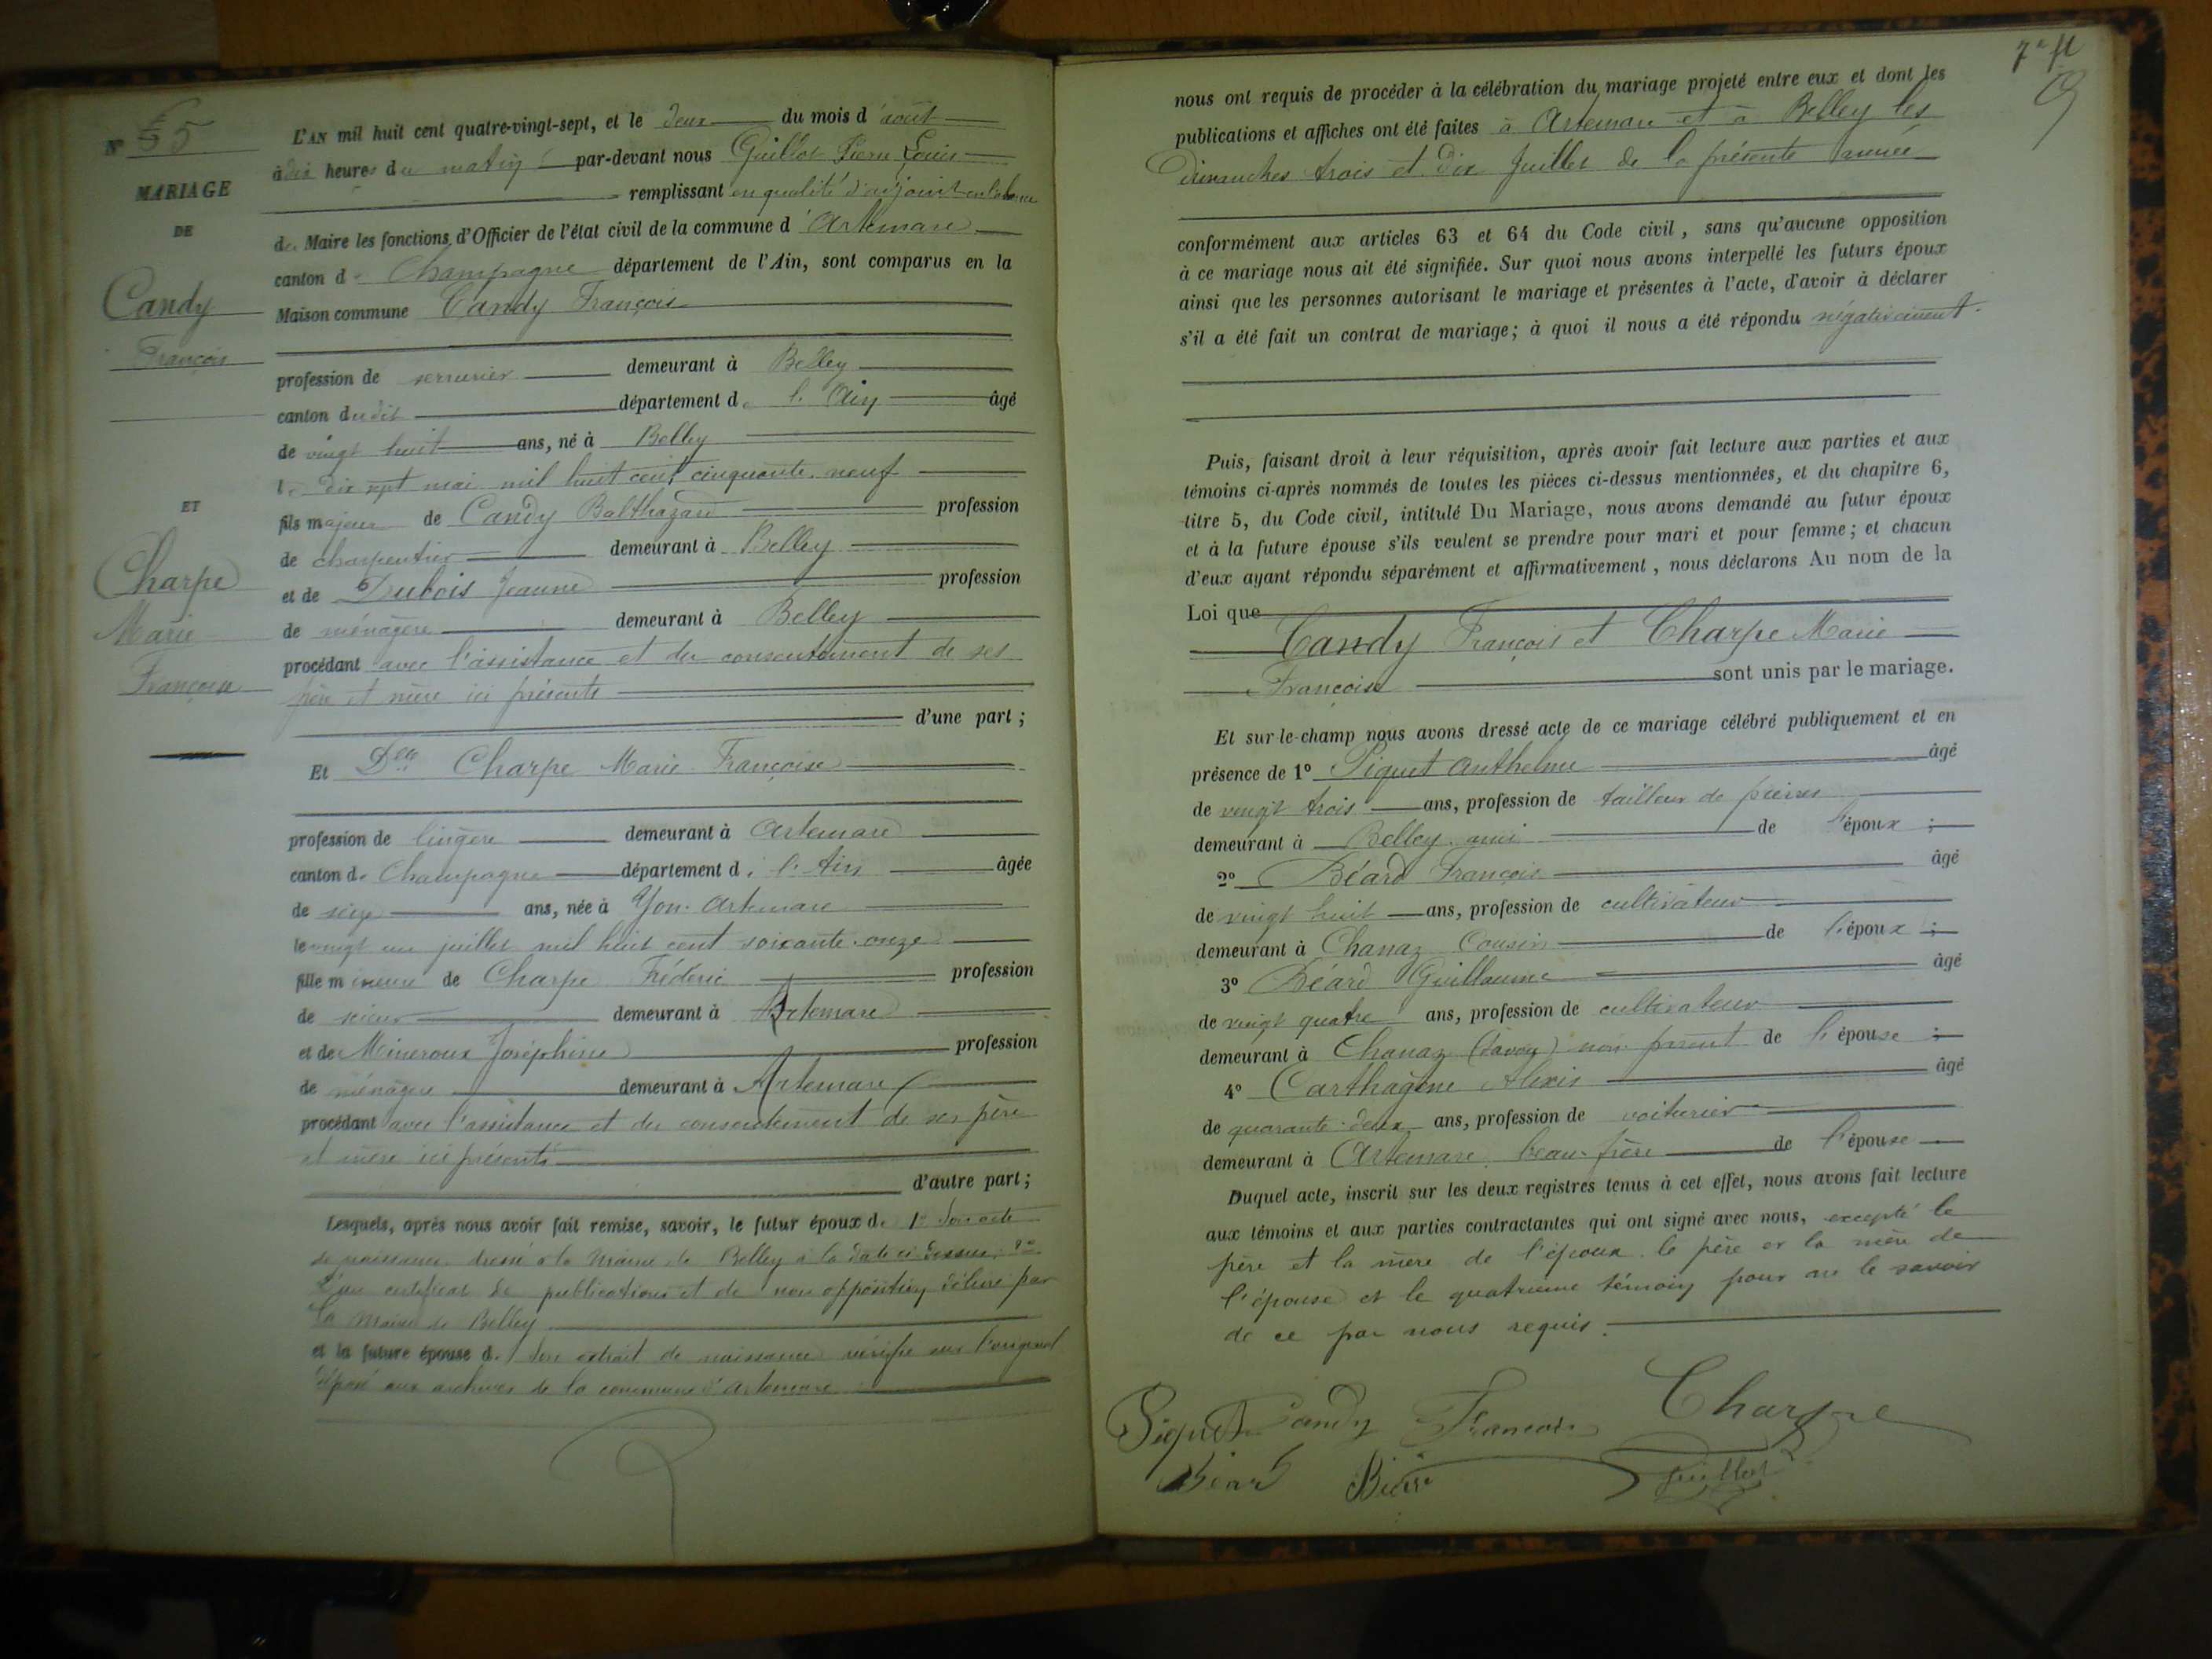 N° 5
MARIAGE
DE
Candy
François
ET
Charpe
Marie
Françoise
L'AN mil huit cent quatre-vingt-sept, et le deux du mois d'août
à dix heures du matin par-devant nous Guillot Pierre Louis
remplissant en qualité d'adjoint en l'absence
du Maire les fonctions d'Officier de l'état civil de la commune d'Artemare
canton de Champagne département de l'Ain, sont comparus en la
Maison commune Candy François
profession de serrurier demeurant à Belley
canton dudit département de l'Ain âgé
de vingt huit ans, né à Belley
le dix sept mai mil huit cent cinquante neuf
fils majeur de Candy Balthazard profession
de charpentier demeurant à Belley
et de Dubois Jeanne profession
de ménagère demeurant à Belley
procédant avec l'assistance et du consentement de ses
père et mère ici présents
d'une part ;
Et Dlle Charpe Marie Françoise
profession de lingère demeurant à Artemare
canton de Champagne département de l'Ain âgée
de seize ans, née à Yon-Artemare
le vingt un juillet mil huit cent soixante-onze
fille mineure de Charpe Fréderic profession
de scieur demeurant à Artemare
et de Mineroux Joséphine profession
de ménagère demeurant à Artemare
procédant avec l'assistance et du consentement de ses père
et mère ici présents
d'autre part ;
Lesquels, après nous avoir fait remise, savoir, le futur époux de 1° Son acte
de naissance dressé à la Mairie de Belley à la date ci dessus 2°
d'un certificat de publications et de non opposition délivré par
la Mairie de Belley
et la future épouse de Son extrait de naissance vérifié sur l'original
déposé aux archives de la commune d'Artemare
7e ft
nous ont requis de procéder à la célébration du mariage projeté entre eux et dont les
publications et affiches ont été faites à Artemare et à Belley les
dimanches trois et dix Juillet de la présente année
conformément aux articles 63 et 64 du Code civil, sans qu'aucune opposition
à ce mariage nous ait été signifiée. Sur quoi nous avons interpellé les futurs époux
ainsi que les personnes autorisant le mariage et présentes à l'acte, d'avoir à déclarer
s'il a été fait un contrat de mariage; à quoi il nous a été répondu négativement.
Puis, faisant droit à leur réquisition, après avoir fait lecture aux parties et aux
témoins ci-après nommés de toutes les pièces ci-dessus mentionnées, et du chapitre 6,
titre 5, du Code civil, intitulé Du Mariage, nous avons demandé au futur époux
et à la future épouse s'ils veulent se prendre pour mari et pour femme; et chacun
d'eux ayant répondu séparément et affirmativement, nous déclarons Au nom de la
Loi que
Candy François et Charpe Marie
Françoise sont unis par le mariage.
Et sur-le-champ nous avons dressé acte de ce mariage célébré publiquement et en
présence de 1° Piquet Anthelme âgé
de vingt trois ans, profession de tailleur de pierres
demeurant à Belley ami de l'époux ;
2° Béard François âgé
de vingt huit ans, profession de cultivateur
demeurant à Chanaz Cousin de l'époux ;
3° Béard Guillaume âgé
de vingt quatre ans, profession de cultivateur
demeurant à Chanaz (Savoie) non parent de l'épouse ;
4° Carthagène Alexis âgé
de quarante-deux ans, profession de voiturier
demeurant à Artemare beau-frère de l'épouse
Duquel acte, inscrit sur les deux registres tenus à cet effet, nous avons fait lecture
aux témoins et aux parties contractantes qui ont signé avec nous, excepté le
père et la mère de l'époux le père et la mère de
l'épouse et le quatrième témoin pour ne le savoir
de ce par nous requis.
Piquet Candy François Charpe
Béard Béard Guillot